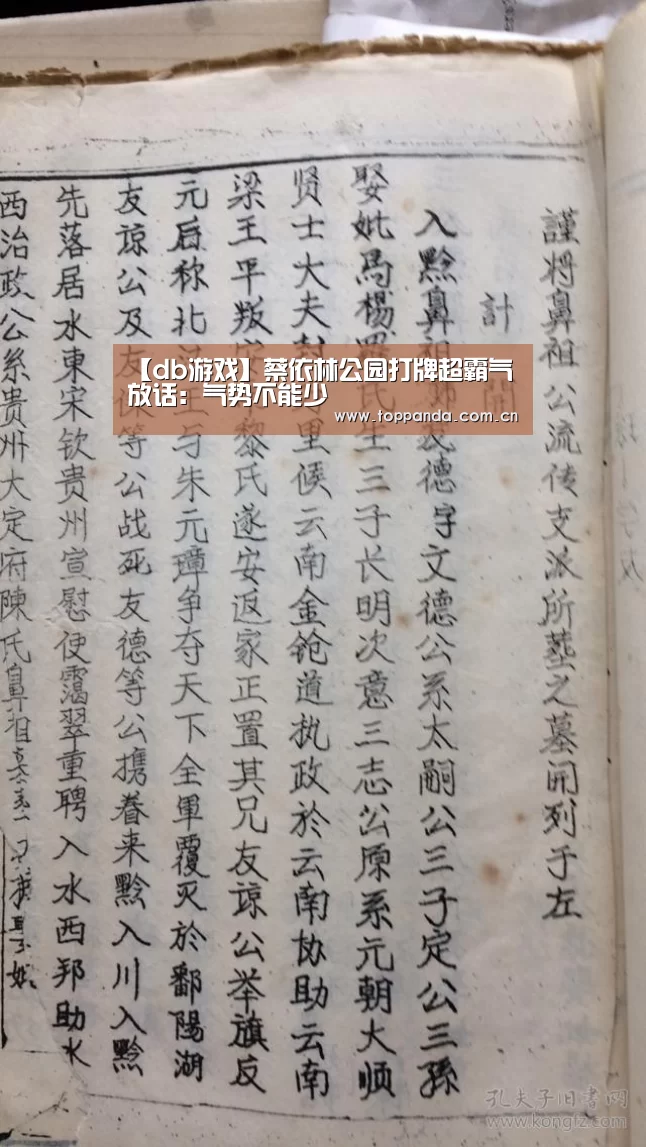 謹将鼻祖公流传支派所塟之墓開列于左
計
入黔鼻祖 德字文德公系太嗣公三子定公三孫
娶妣馬楊 氏生三子长明次意三志公原系元朝大顺
贤士大夫 里候云南金鎗道执政於云南协助云南
梁王平叛 黎氏遂安返家正置其兄友谅公举旗反
元后称北 与朱元璋争夺天下全軍覆灭於鄱陽湖
友谅公及友 等公战死友德等公携眷来黔入川入黔
先落居水東宋钦贵州宣慰使靄翠重聘入水西邦助水
西治政公系贵州大定府陳氏鼻祖
【db游戏】蔡依林公园打牌超霸气
放话：气势不能少
www.toppanda.com.cn
孔夫子旧書网
www.kongfz.com